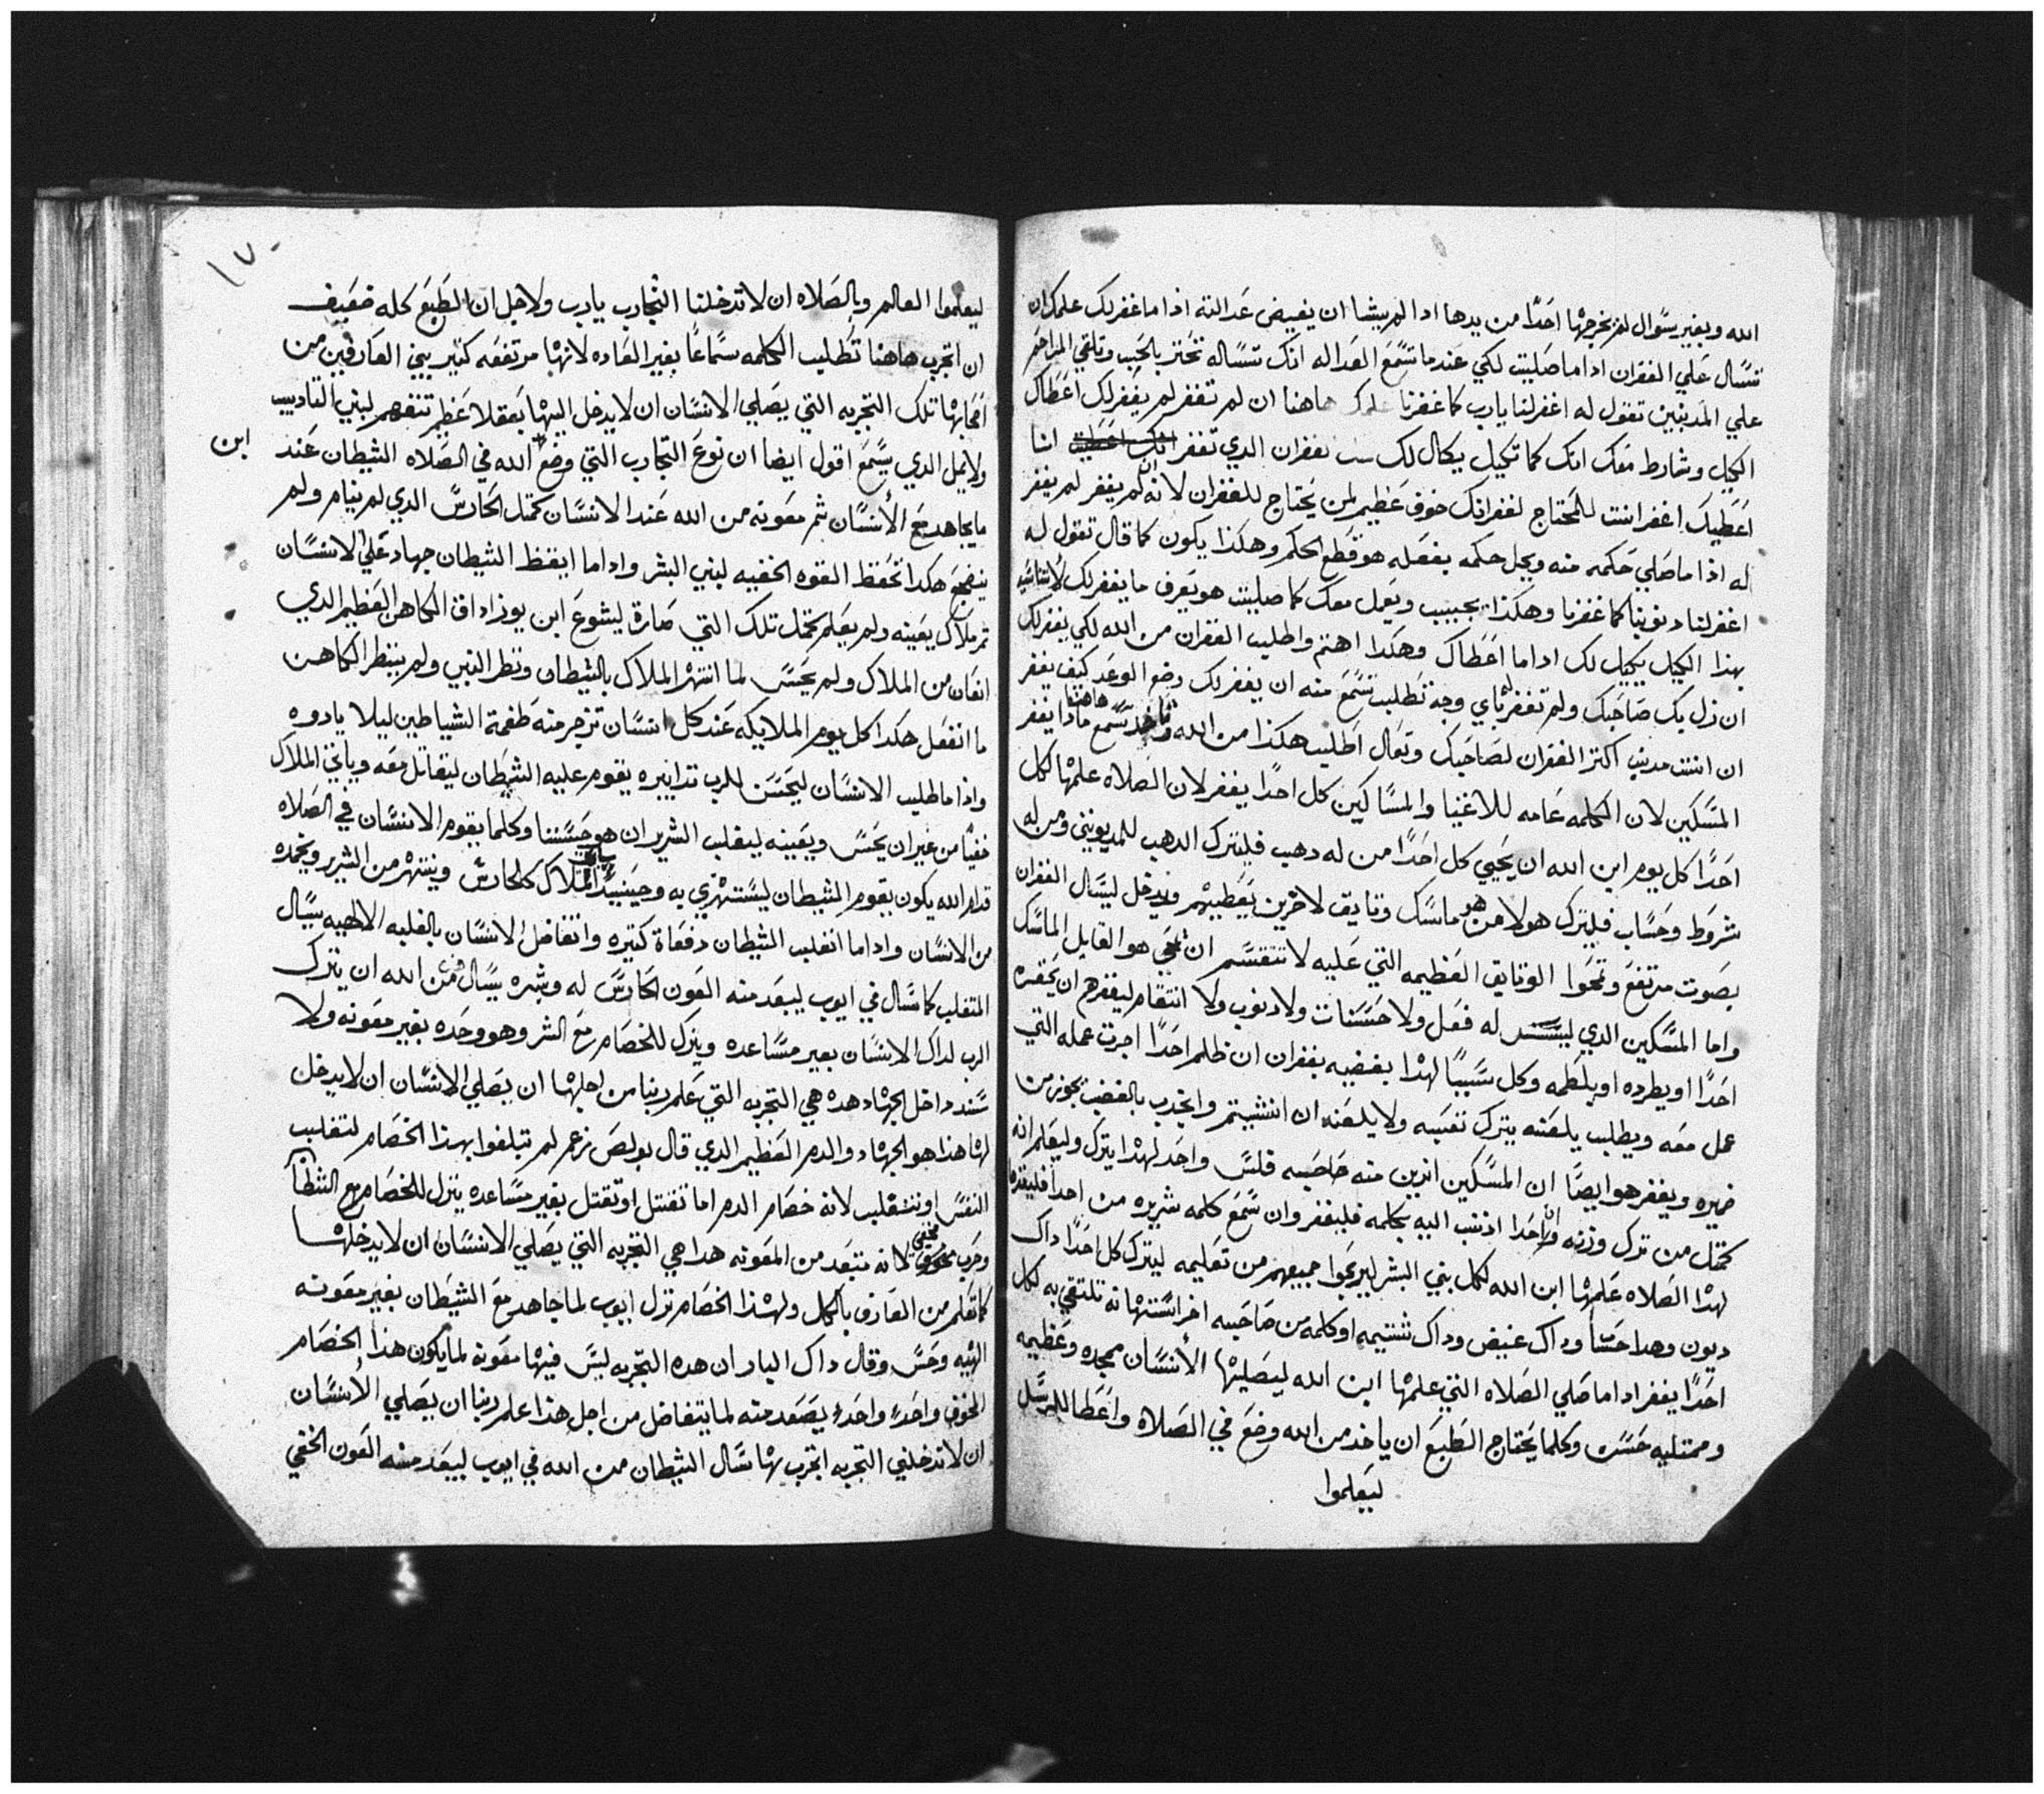 الله وبغير سوال لم يخرجها احدًا من يدها اذا لم يشا ان يفيض عدالته اذا ما غفر لك علمك ان
تسال علي الغفران اذا ما صليت لكي عندما تسمع العداله انك تساله تحتر بالحب وتلقي المراحم
علي المدنبين تقول له اغفر لنا يارب كما غفرنا هاهنا ان لم تغفر لم يغفر لك اعطاك
الكيل وشارط معك انك كما تكيل يكال لك غفران الدي تغفر انا
اعطيك اغفر انت للمحتاج لغفرانك خوف عظيم لمن يحتاج للغفران لانه لم يغفر لم يغفر
له اذا ما صلي حكمه منه وبحل حكمه بفعله هو قطع الحكم وهكذا يكون كما قال تقول له
اغفر لنا دنوبنا كما غفرنا وهكذا يجيب ويعمل معك كما صليت هو يعرف ما يغفر لك
بهذا الكيل يكيل لك اداما اعطاك وهكدا اهتم واطلب الغفران من الله لكي يغفر لك
ان زل بك صاحبك ولم تغفر باي وجه تطلب تسمع منه ان يغفر لك وضع الوعد كيف يغفر
ان انت مدنب اكثر الغفران لصاحبك وتعال اطلب هكذا من الله هاهنا تسمع ماذا يغفر
المسكين لان الكلمه عامه للاغنيا والمساكين كل احدًا يغفر لان الصلاه علمها لكل
احدًا كل يوم ابن الله ان يحيي كل احدًا من له دهب فليترك الدهب للمديونين ومن له
شروط وحساب فليترك هولا من هو ماسك وثايق لاخرين يعطيهم ويدخل ليسال الغفران
بصوت مرتفع وتمحوا الوثايق العظيمه التي عليه لا تنقسم ان هو القايل الماسك
واما المسكين الدي ليس له فعل ولا حسنات ولا دنوب ولا انتقام ليغفرهم ان يحقره
احدًا او يطرده او يلطمه وكل سببًا لهذا بغضبه بغفران ان ظلم احدًا اجرت عمله التي
عمل معه ويطلب يلعنه يترك تعبه ولا يلعنه ان انشتم وانجدب بالغضب يجوز من
ضميره ويغفر هو ايضا ان المسكين اندين منه صاحبه فلس واحد لهذا يترك وليعلم انه
كمثل من ترك وزنه وان احدا اذنب اليه بكلمه فليغفر وان سمع كلمه شريره من احدا فليغفر
لهذا الصلاه علمها ابن الله لكل بني البشر ليربحوا جميعهم من تعليمه ليترك كل احدًا داك
ديون وهدا حسا وداك غبض وداك شتيمه او كلمه من صاحبه اخر استهانه تلتقي به لكل
احدًا يغفر اداما صلي الصلاه التي علمها ابن الله ليصليها الأنسان ممجده وعظيمه
وممتليه حسن وكلما يحتاج الطبع ان ياخد من الله وضع في الصلاه واعطا للرسل
ليعلموا
١٧٠
ليعلموا العالم وبالصلاه ان لا تدخلنا التجارب يارب ولاجل ان الطبع كله ضعيف
ان اتجرب هاهنا تطلب الكلمه سماعًا بغير العاده لانها مرتفعه كتير بين العارفين من
اصحابها تلك التجربه التي يصلي الانسان ان لا يدخل اليها بعقلا عظيم تتفهم لبني التاديب
ولا يمل الدي يسمع اقول ايضا ان نوع التجارب التي وضع الله في الصلاه الشيطان عند
ابن
ما يجاهد مع الأنسان ثم معونه من الله عند الانسان كمثل الحارس الدي لم ينام ولم
ينضجع هكدا تحفظ القوه الخفيه لبني البشر واداما ايقظ الشيطان جهاد علي الانسان
تم ملاك يعينه ولم يعلم كمثل تلك التي صارة ليشوع ابن يوزاداق الكاهن العظيم الدي
انعان من الملاك ولم يحس لما انتهر الملاك بالشيطان ونظر النبي ولم ينظر الكاهن
ما انفعل هكدا كل يوم الملايكه عند كل انسان تزجر منه طغمة الشياطين ليلا يادوه
واذا ما طلب الانسان ليحسن للرب تدابيره يقوم عليه الشيطان ليقاتل معه وياتي الملاك
خفيًا من غير ان يحس ويعينه ليغلب الشرير ان هو حسنا وكلما يقوم الانسان في الصلاه
قدام الله يكون يقوم الشيطان ليستهزي به وحينيدًا الملاك كالحارس وينتهر من الشرير ويخمده
من الانسان واداما انغلب الشيطان دفعاة كتيره واتفاضل الانسان بالغلبه الالهيه يسال
المتغلب كما سال في ايوب ليبعد منه العون الحارس له وشره يسال من الله ان يترك
الرب لداك الانسان بغير مساعده وينزل للخصام مع الشر وهو وحده بغير معونه ولا
سند داخل الجهاد هده هي التجربه التي علم ربنا من اجلها ان يصلي الانسان ان لا يدخل
لها هذا هو الجهاد والدم العظيم الدي قال بولص نزعم لم تبلغوا بهذا الخصام لتغلب
النفس او تنغلب لانه خصام الدم اما تقتل او تقتل بغير مساعده ينزل للخصام مع الشيطان
وحرب مخفي لانه تبتعد من المعونه هدا هي التجربه التي يصلي الانسان ان لا يدخلها
كما تعلم من العارف بالكل ولهذا الخصام نزل ايوب لما جاهد مع الشيطان بغير معونه
الهيه وحس وقال داك البار ان هده التجربه ليس فيها معونه لما يكون هذا الخصام
الخوف واحدًا واحدًا يصعد منه لما يتفاضل من اجل هذا علم ربنا ان يصلي الأنسان
ان لا تدخلني التجربه اتجرب بها سال الشيطان من الله في ايوب ليبعد منه العون الخفي